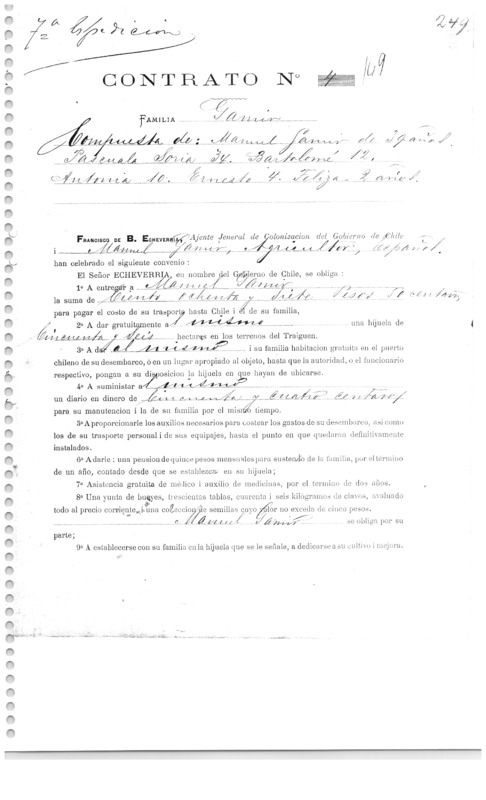 7ª Espedicion
249
CONTRATO Nº 4 149
FAMILIA Gamir
Compuesta de: Manuel Gamir de 39 años.
Pascuala Soria 34. Bartolomé 12.
Antonia 10. Ernesto 4. Feliza 2 años.
FRANCISCO DE B. ECHEVERRIA, Ajente Jeneral de Colonizacion del Gobierno de Chile
i Manuel Gamir, Agricultor, español.
han celebrado el siguiente convenio :
El Señor ECHEVERRIA, en nombre del Gobierno de Chile, se obliga :
1º A entregar a Manuel Gamir
la suma de Ciento ochenta y siete Pesos 50 centav.
para pagar el costo de su trasporte hasta Chile i el de su familia,
2º A dar gratuitamente al mismo una hijuela de
Cincuenta y seis hectares en los terrenos del Traiguen.
3º A dar al mismo i su familia habitacion gratuita en el puerto
chileno de su desembarco, ó en un lugar apropiado al objeto, hasta que la autoridad, o el funcionario
respectivo, pongan a su disposicion la hijuela en que hayan de ubicarse.
4º A suministar al mismo
un diario en dinero de Cincuenta y cuatro centavos
para su manutencion i la de su familia por el mismo tiempo.
5º A proporcionarle los auxilios necesarios para costear los gastos de su desembarco, asi como
los de su trasporte personal i de sus equipajes, hasta el punto en que quedaran definitivamente
instalados.
6º A darle : una pension de quince pesos mensuales para sustento de la familia, por el término
de un año, contado desde que se establezca en su hijuela;
7º Asistencia gratuita de médico i auxilio de medicinas, por el termino de dos años.
8º Una yunta de bueyes, trescientas tablas, cuarenta i seis kilógramos de clavos, avaluado
todo al precio corriente, i una coleccion de semillas cuyo valor no exceda de cinco pesos.
Manuel Gamir se obliga por su
parte;
9º A establecerse con su familia en la hijuela que se le señale, a dedicarse a su cultivo i mejora.